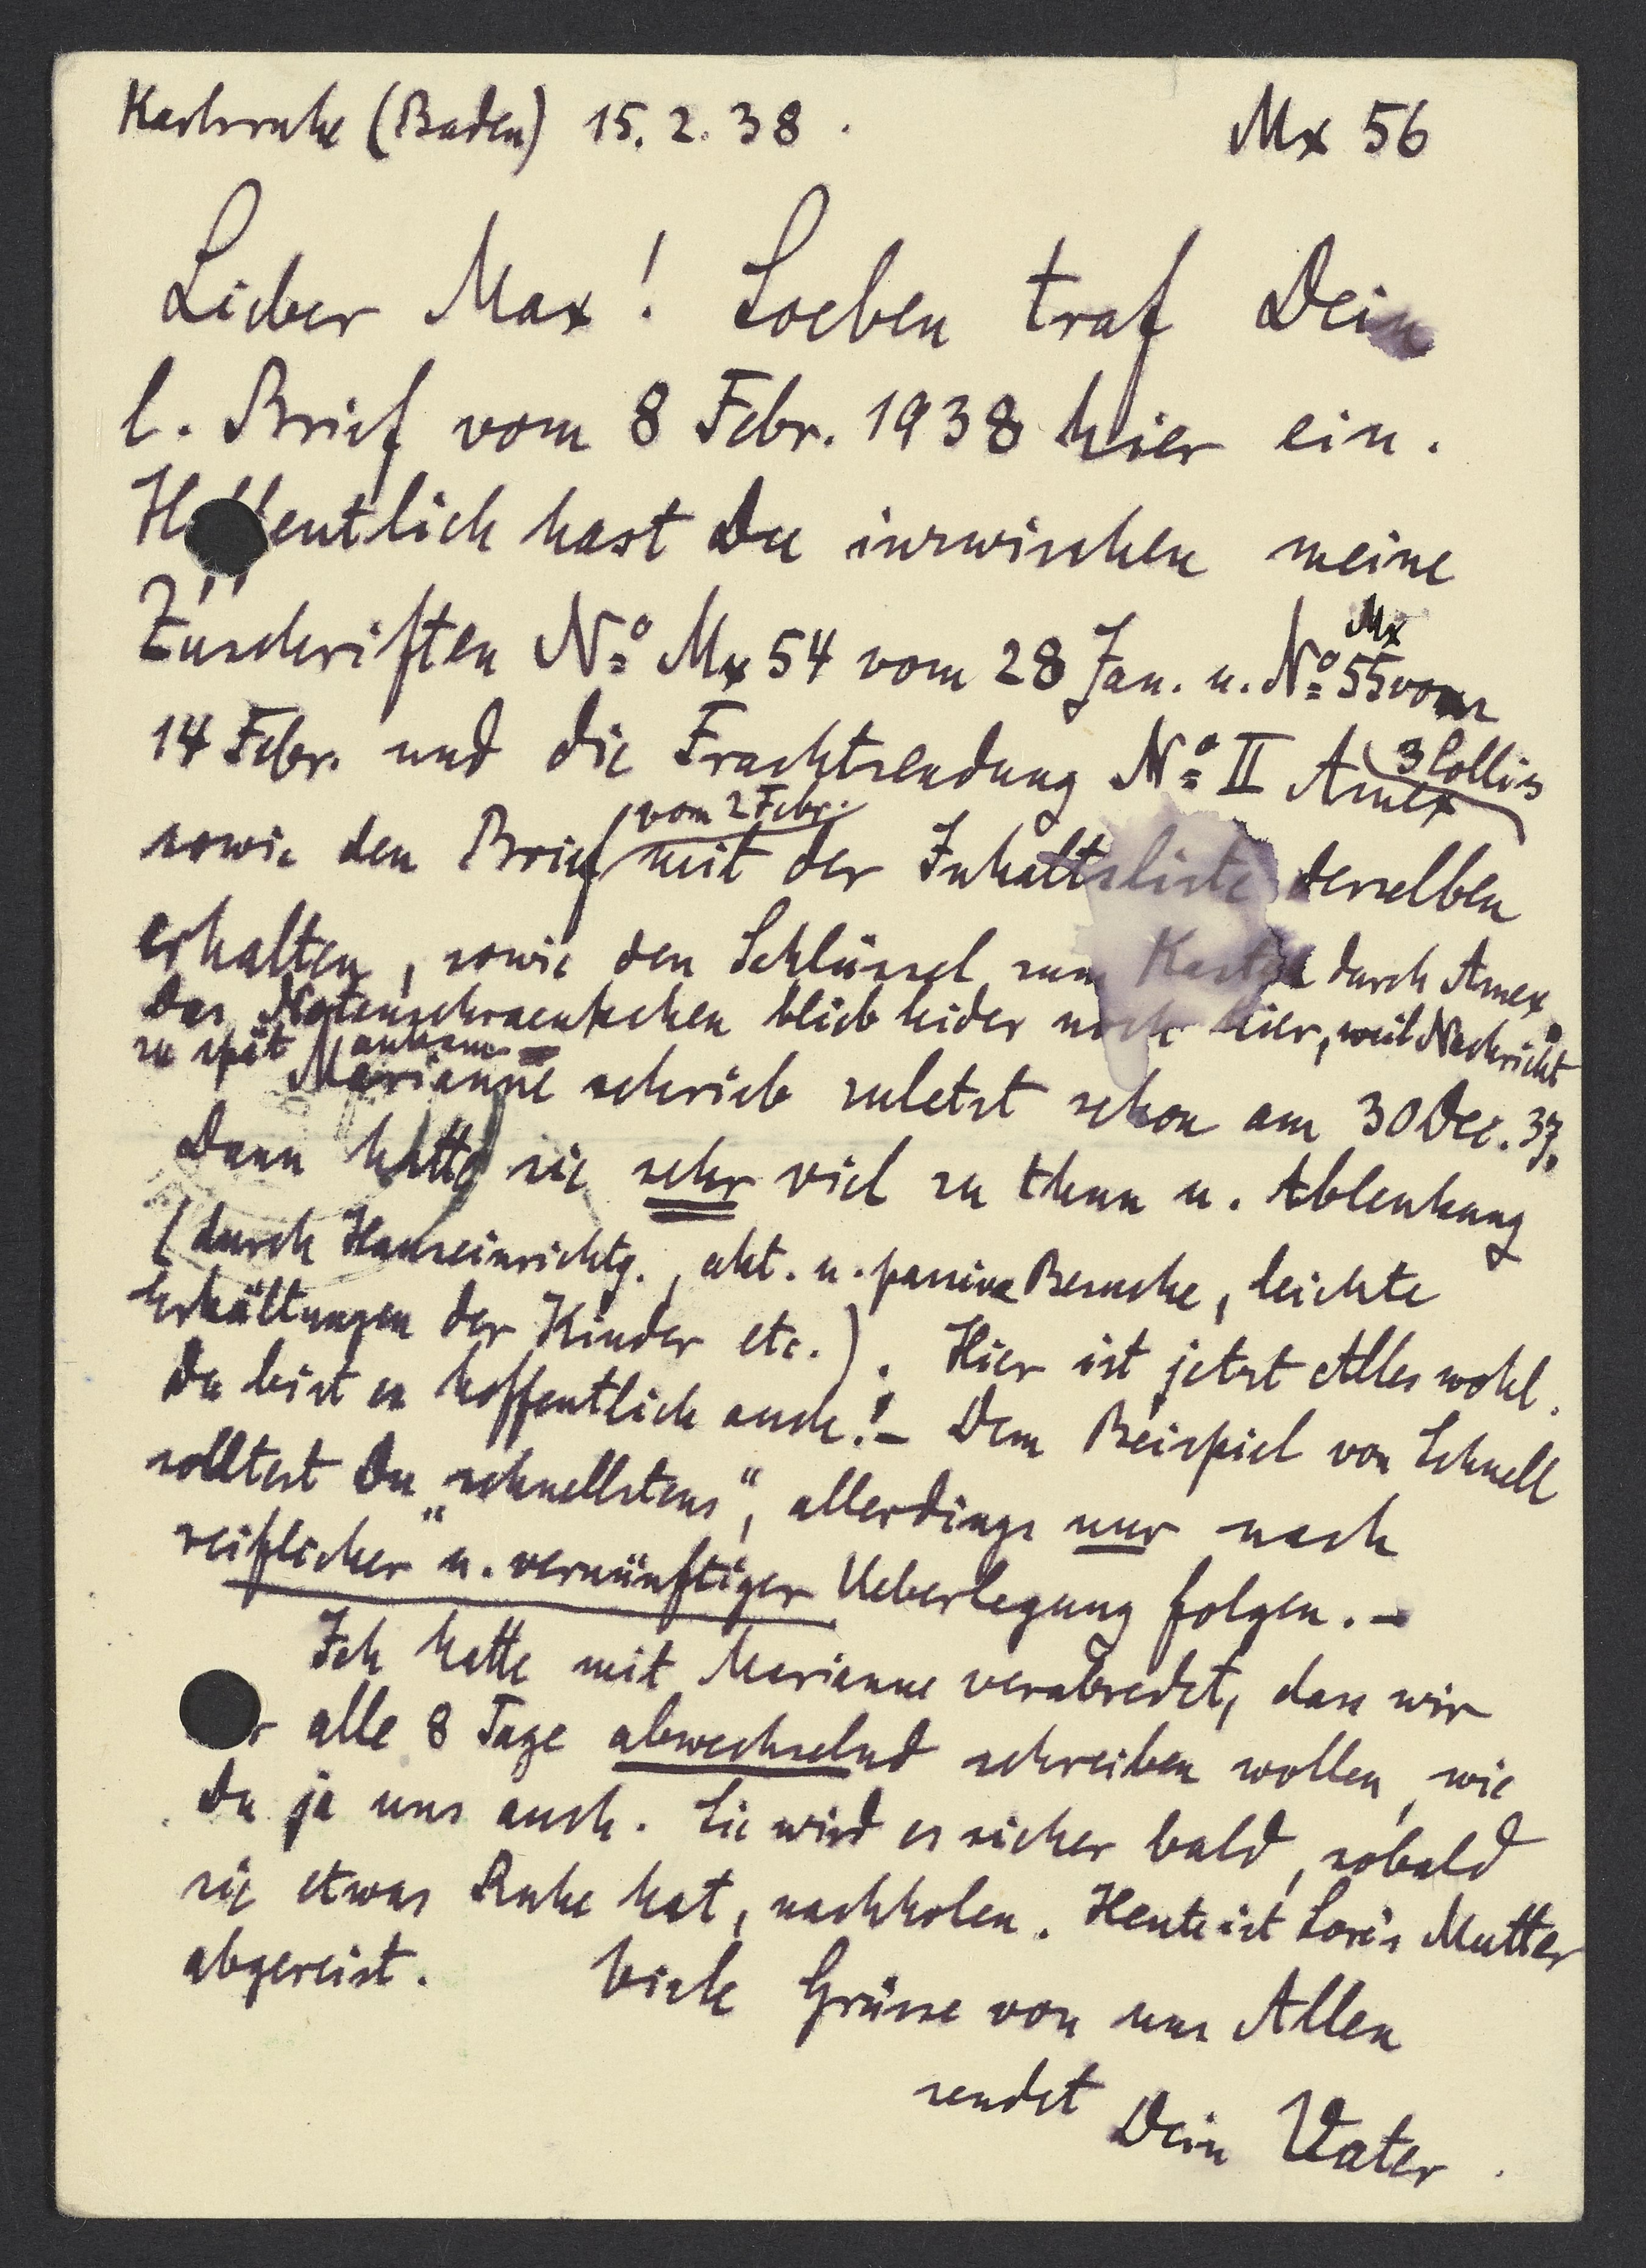 Karlsruhe (Baden) 15.2.38. Mx 56
Lieber Max! Soeben traf Dein
l. Brief vom 8 Febr. 1938 hier ein.
Hoffentlich hast Du inzwischen meine
Zuschriften No Mx 54 vom 28 Jan. u. No Mx 55 vom
14 Febr. und die Frachtsendung No II Amex (3 Collis)
sowie den Brief vom 2 Febr. mit der Inhaltsliste derselben
erhalten, sowie den Schlüssel zum Kasten durch Amex.
Das Notenschraenkchen blieb leider noch hier, weil Nachricht
zu spät ankam
Marianne schrieb zuletzt schon am 30 Dec. 37.
Dann hatte sie sehr viel zu thun u. Ablenkung
(durch Hauseinrichtg., akt. u. passive Besuche, leichte
Erkältungen der Kinder etc.). Hier ist jetzt Alles wohl.
Du bist es hoffentlich auch! – Dem Beispiel von Schnell
solltest Du „schnellstens“, allerdings nur nach
„reiflicher“ u. vernünftiger Ueberlegung folgen. –
Ich hatte mit Marianne verabredet, dass wir
alle 8 Tage abwechselnd schreiben wollen, wie
Du ja uns auch. Sie wird es sicher bald, sobald
sie etwas Ruhe hat, nachholen. Heute ist Lore's Mutter
abgereist. Viele Grüsse von uns Allen
sendet Dein Vater.